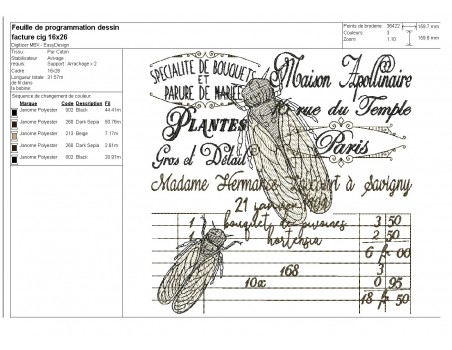 Feuille de programmation dessin
facture cig 16x26
Digitizer MBX - EasyDesign
Points de broderie: 36422
Couleurs: 3
Zoom: 1.10
169.7 mm
169.8 mm
Tissu: Pur Coton
Stabilisateur requis: Avivage : Support : Arrachage x 2
Cadre 16x26
Longueur totale de fil dans la bobine: 31.57m
Séquence de changement de couleur:
Marque Code Description Fil
Janome Polyester 002 Black 44.41m
Janome Polyester 260 Dark Sepia
Janome Polyester 213 Beige 7.17m
Janome Polyester 260 Dark Sepia 2.81m
Janome Polyester 002 Black 20.97m
SPECIALITE DE BOUQUETS
ET
PARURE DE MARIÉE
Maison Apollinaire
rue du Temple
PLANTES
Paris
Gros et Détail
Madame Hermance à Savigny
21
1 bouquet de pivoines 3 50
1 hortensia 2 50
6 00
168 3
10x 0 95
18 50